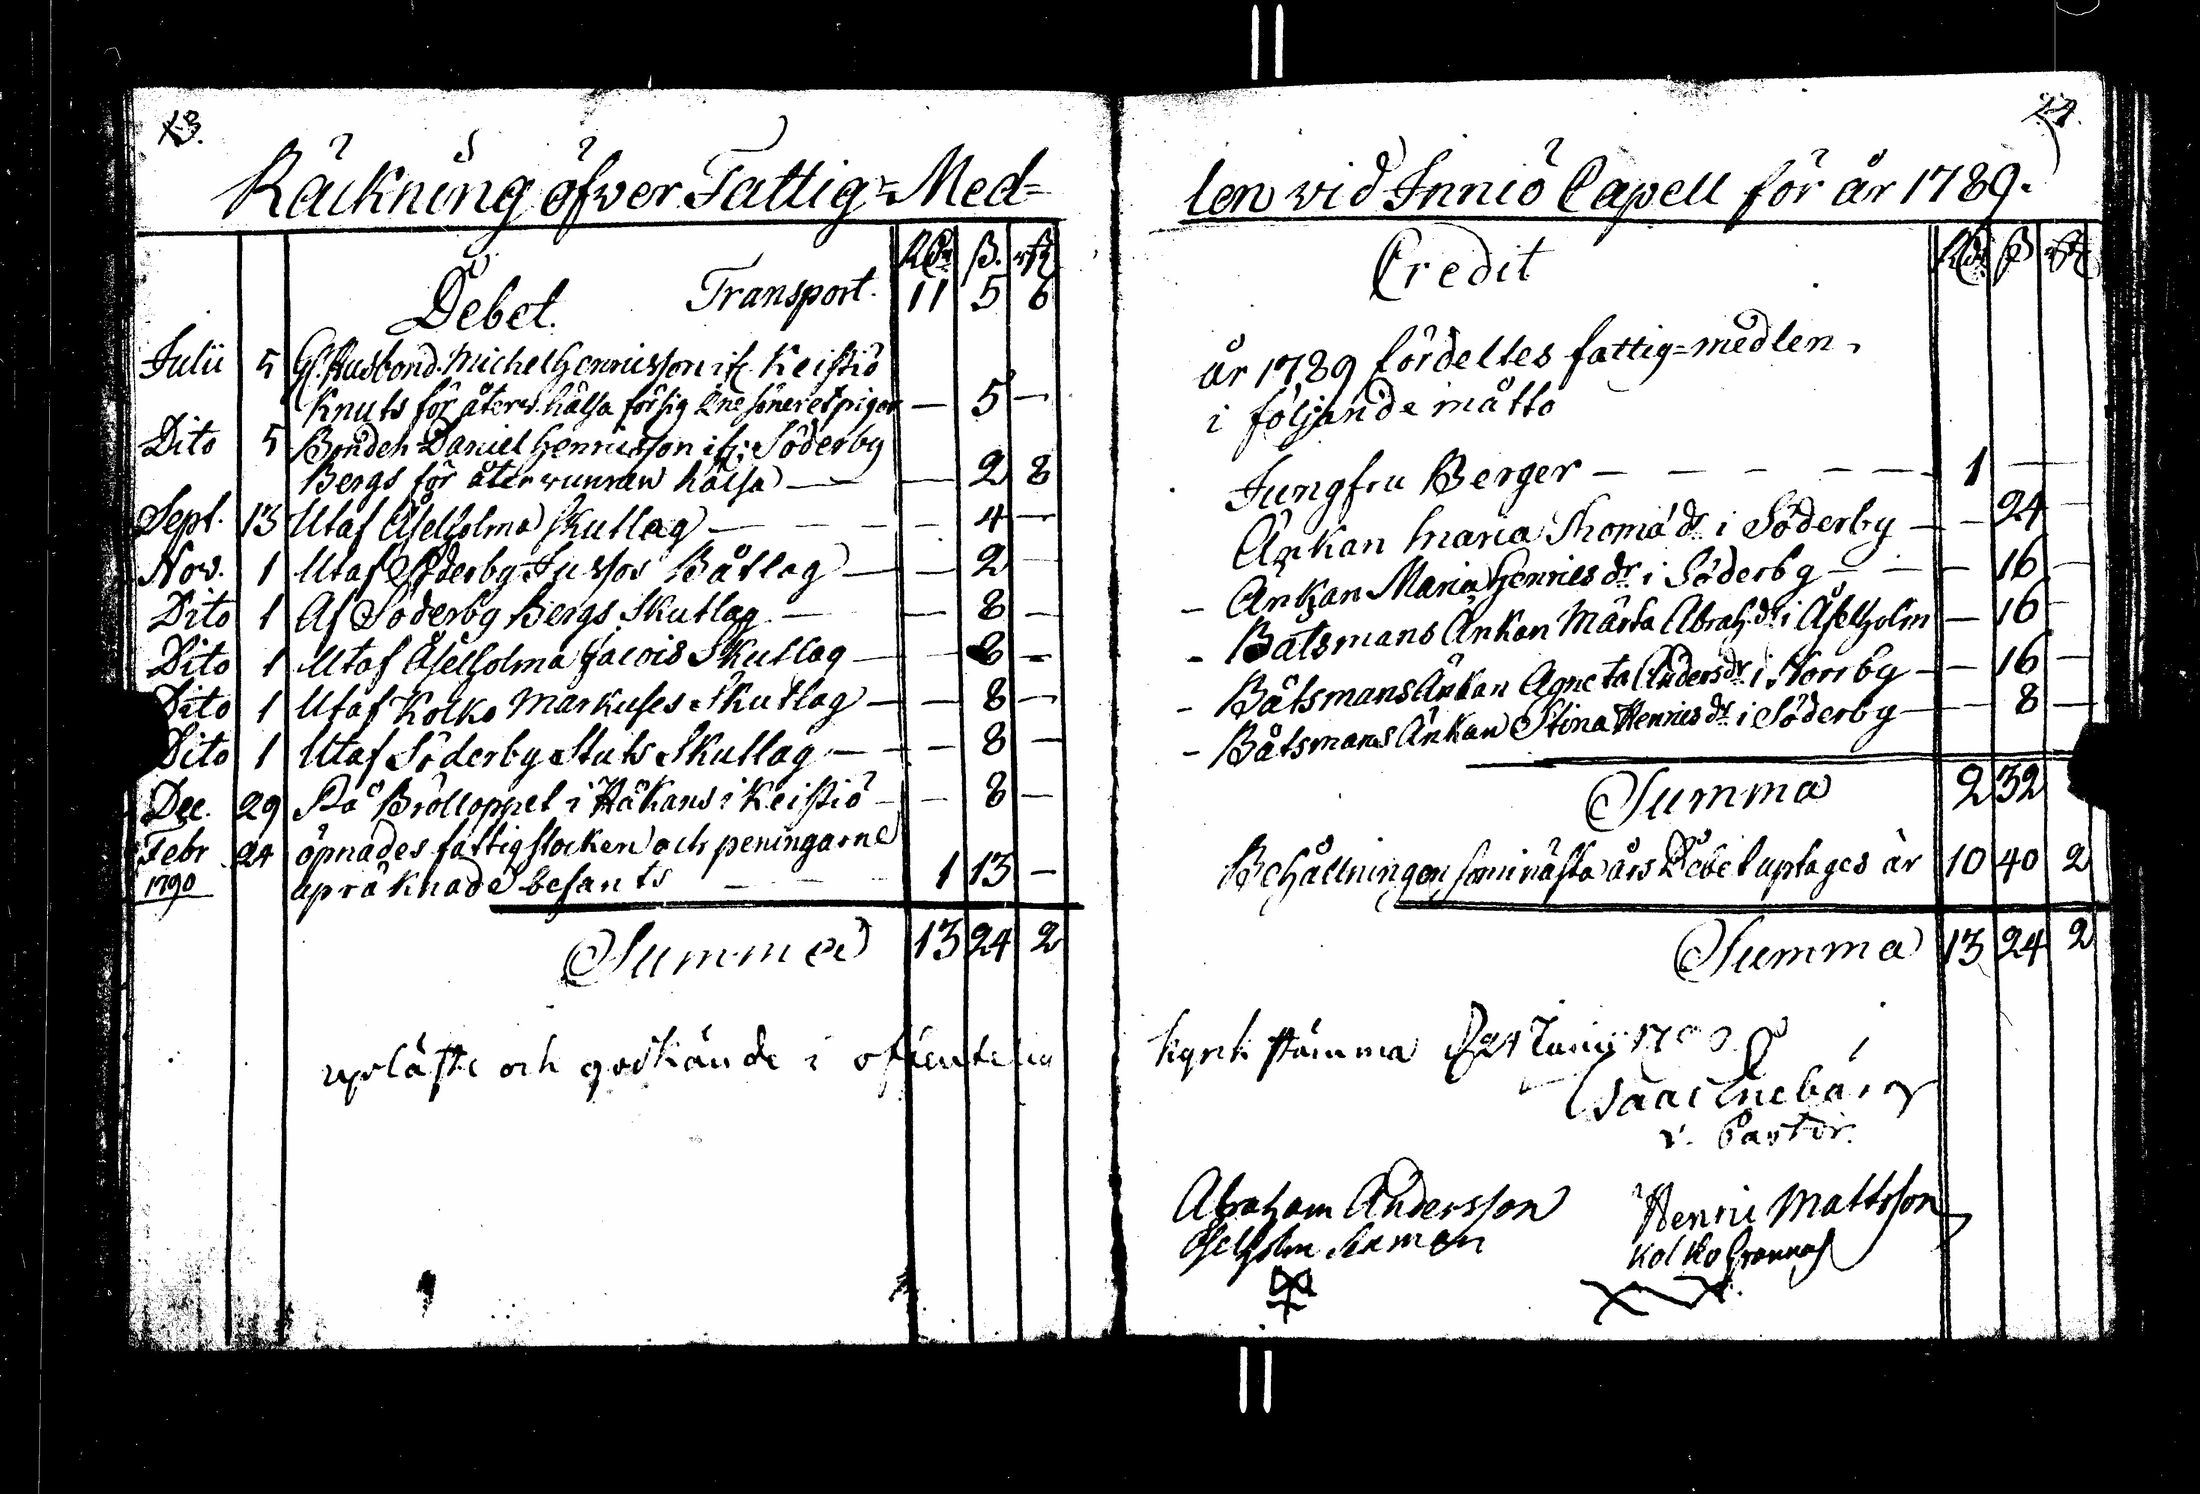 23.
Räckning öfver Fattig=Med=
Rdr ß. rst
Debet. Transport. 11 5 6
Julii 5 Gl. Husbond. Michel Henricsson ifr. Keistiö
Knuts för återv. hälsa för sig söner et pigor — 5 —
Dito 5 Bonden Daniel Henricsson ifr: Söderby
Bergs för återvunnen hälsa — — 2 8
Sept. 13 Utaf Åselholma Skutlag — — — — 4 —
Nov. 1 Utaf Söderby Jussos Båtlag — — 2 —
Dito 1 Af Söderby Bergs Skutlag — — 8 —
Dito 1 Utaf Åselholma Skutlag — — 8 —
Dito 1 Utaf Kolko Markuses Skutlag — — 8 —
Dito 1 Utaf Söderby Stuts Skutlag — — 8 —
Dec. 29 På Brölloppet i Håkans i Keistiö — — 8 —
Febr 24 öpnades fattigstocken och peningarne
1790 upräknade befants — — — 1 13 —
Summa 13 24 2
upläste och godkände i offentelig
24.
len vid Inniö Capell för år 1789.
Credit Rdr ß rst
år 1789 fördeltes fattig=medlen
i följande måtto
Jungfru Berger — — — — — 1 —
Änkan Maria Thomædr. i Söderby — — 24 —
— Änkan Maria Henricsdr i Söderby — — — 16 —
— Båtsmans Änkan Märta Abrah.dr i Åselholm — 16 —
— Båtsmans Änkan Agneta Andersdr i Norrby — — 16 —
— Båtsmans Änkan Stina Henricsdr i Söderby — — 8 —
Summa 2 32
Behållningen som i nästa års Debet uptages är 10 40 2
Summa 13 24 2
kyrk stämma d 24 Junii
Isaac Enebärg
v. Pastor.
Abraham Andersson Henric Mattsson
Åselholm Kolko